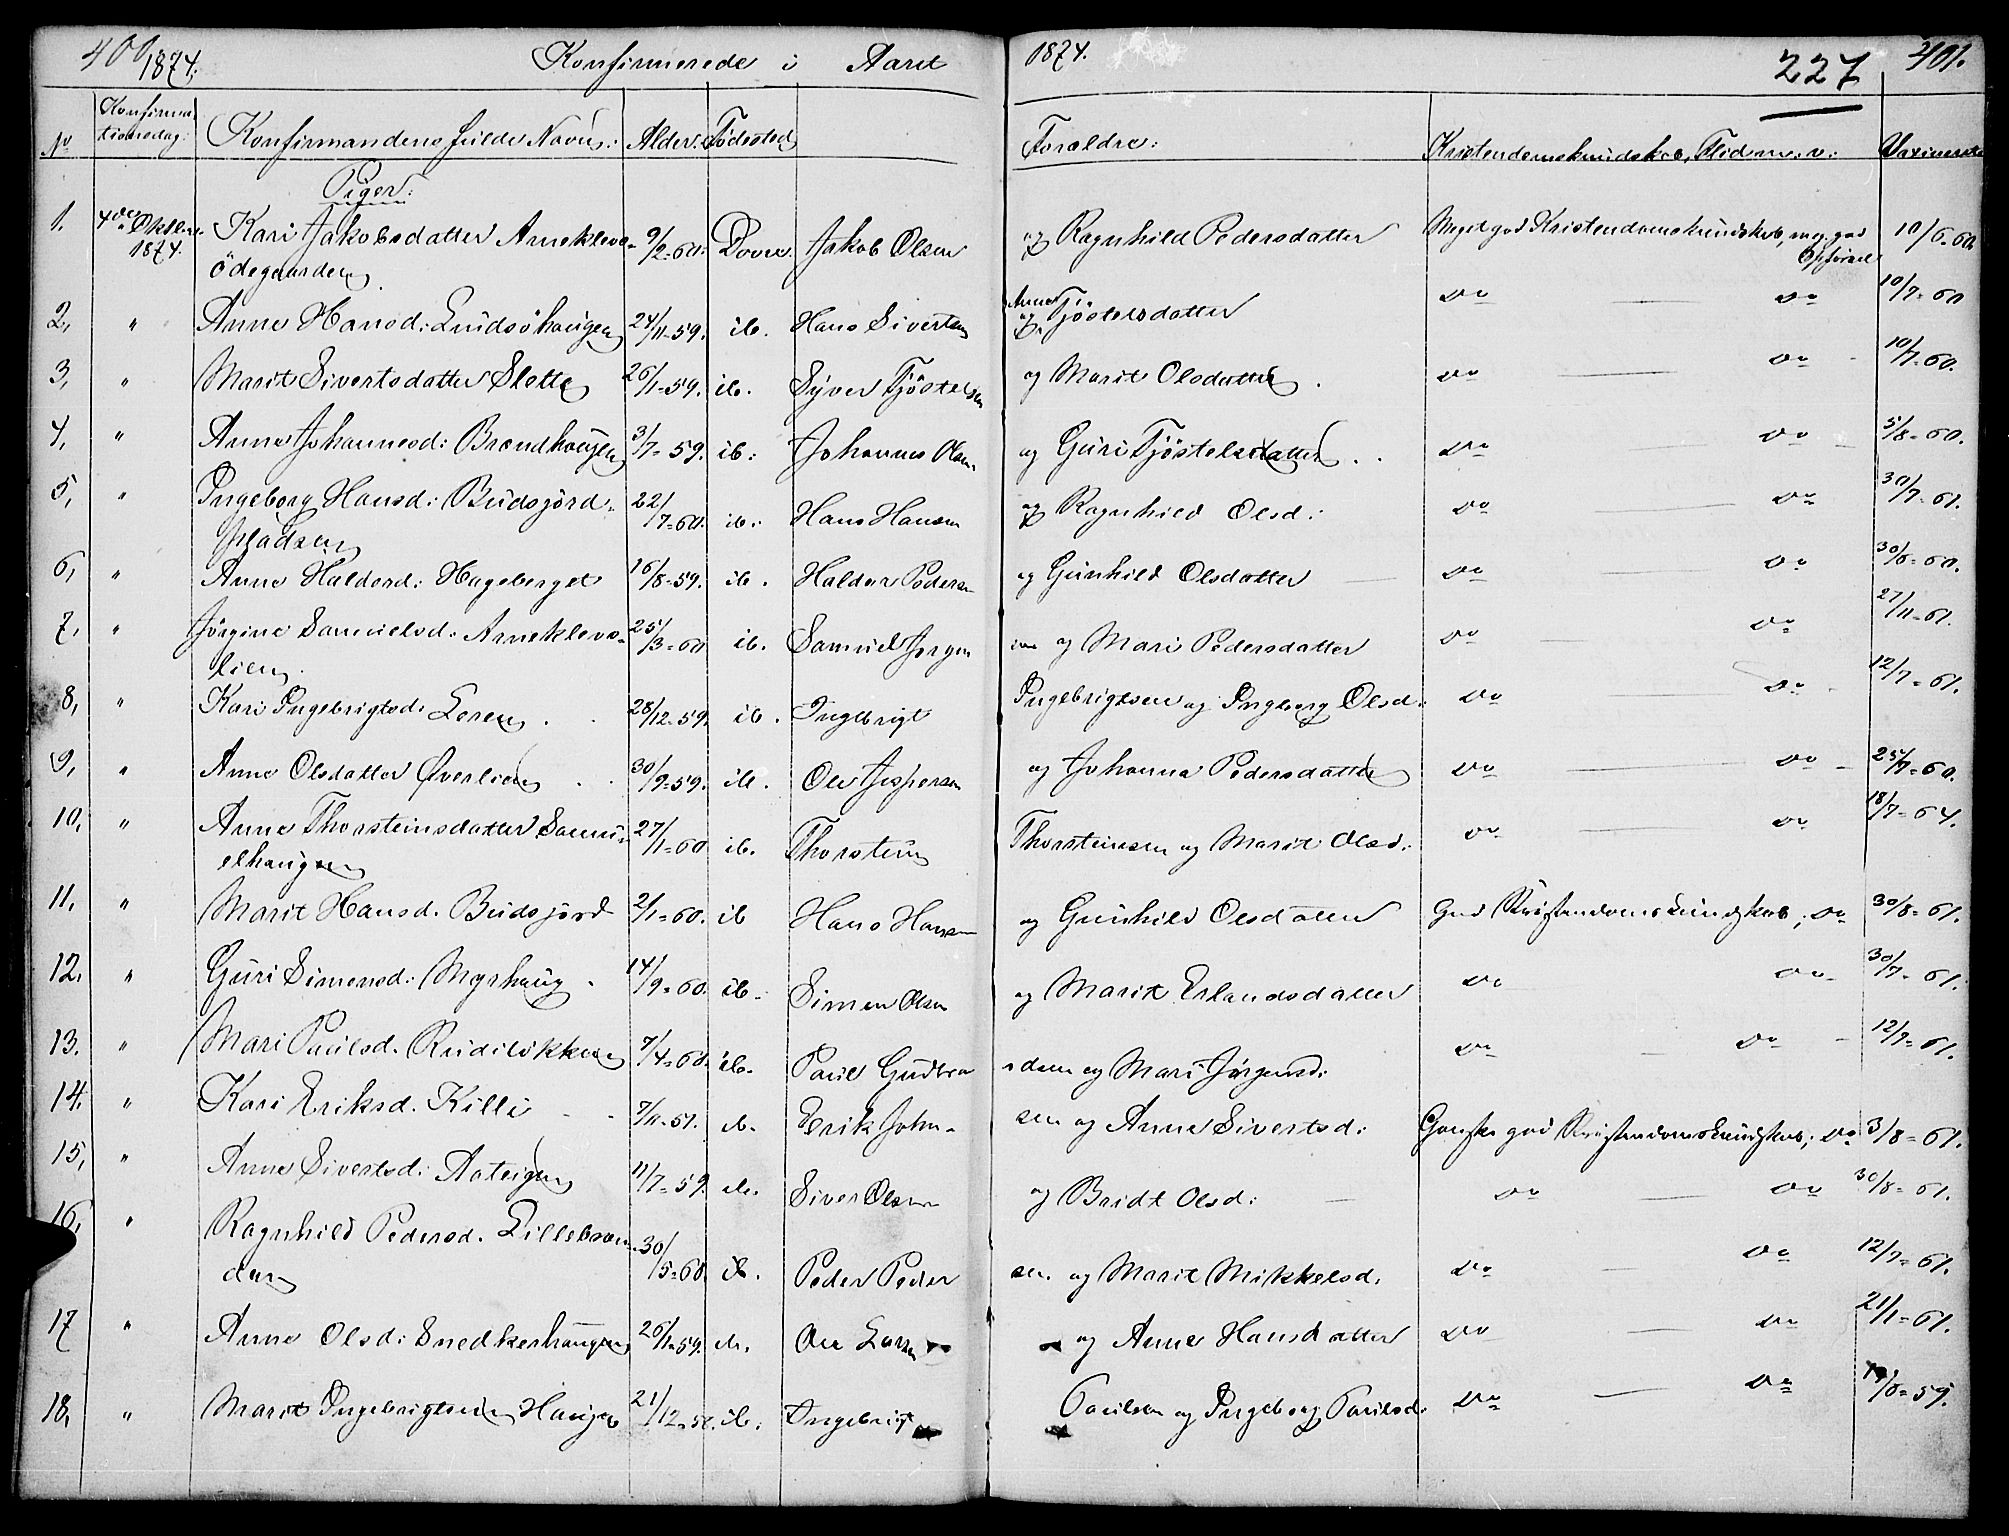 400 1874. Konfirmerede i Aaret 1874. 227 401.
No Konfirma- tionsdag: Konfirmandens fulde Navn: Alder. Födested Forældre: Kristendomskundskab, Flid m. v: Vaxinerede
Piger:
1. 4de Oktbr. 1874. Kari Jakobsdatter Arneklevs- 9/2-60. Dovre. Jakob Olsen og Ragnhild Pedersdatter Meget god Kristendomskundskab, meg. god Opførsel 10/6-60.
ödegaarden
2, " Anne Hansd: Lindsöhaugen 24/11-59. ib. Hans Sivertsen og Anne Tjöstelsdatter do do 10/7-60
3, " Marit Sivertsdatter Slette 26/1-59. ib. Syver Tjöstelsen og Marit Olsdatter. do do 10/7-60.
4, " Anne Johannesd: Brændhaugen 3/7-59. ib: Johannes Olsen og Guri Tjöstelsdatter. do do 5/8-60.
5, " Ingeborg Hansd: Budsjord- 22/7-60. ib: Hans Hansen og Ragnhild Olsd: do do 30/7-61.
pladsen
6, " Anne Haldord: Hageberget 16/8-59. ib. Haldor Pedersen og Gunhild Olsdatter do do 30/6-60.
7, " Jörgine Samuelsd: Arneklevs- 25/3-60 ib. Samuel Jørgen sen og Mari Pedersdatter do do 27/11-61.
lien.
8, " Kari Ingebrigtsd: Loren. 28/12-59. ib. Ingebrigt Ingebrigtsen og Ingeborg Olsd: do do 12/7-61.
9, " Anne Olsdatter Øverlien 30/9-59. ib. Ole Jespersen og Johanna Pedersdatter do do 25/7-60.
10, " Anne Thorsteinsdatter Samu- 27/1-60 ib. Thorstein Thorsteinsen og Marit Olsd: do do 18/7-64.
elhaugen
11. " Marit Hansd. Budsjord 2/1-60. ib Hans Hansen og Gunhild Olsdatter God Kristendomskundskab; do 30/8-61.
12. " Guri Simensd: Myrhaug. 14/9-60. ib. Simen Olsen og Marit Erlandsdatter do do 30/7-61.
13. " Mari Paulsd. Rudilökken 7/4-60. ib. Paul Gudbra ndsen og Mari Jørgensd: do do 12/7-61.
14. " Kari Eriksd. Killi 7/11-57. ib. Erik John- sen og Anne Sivertsd: Ganske god Kristendomskundskab; do 3/8-61.
15, " Anne Sivertsd: Aateigen 11/7-59. ib. Siver Olsen og Bridt Olsd: do do 30/8-61.
16, " Ragnhild Pedersd. Lillebræn- 30/5-60. ib. Peder Peder sen og Marit Mikkelsd. do do 12/7-61.
den
17 " Anne Olsd: Snedkerhaugen 26/11-59. ib. Ole Larsen og Anne Hansdatter do do 21/1-61.
18, " Marit Ingebrigtsd: Haugen 21/12-58. ib. Ingebrigt Paulsen og Ingeborg Paulsd. do do /8-59.